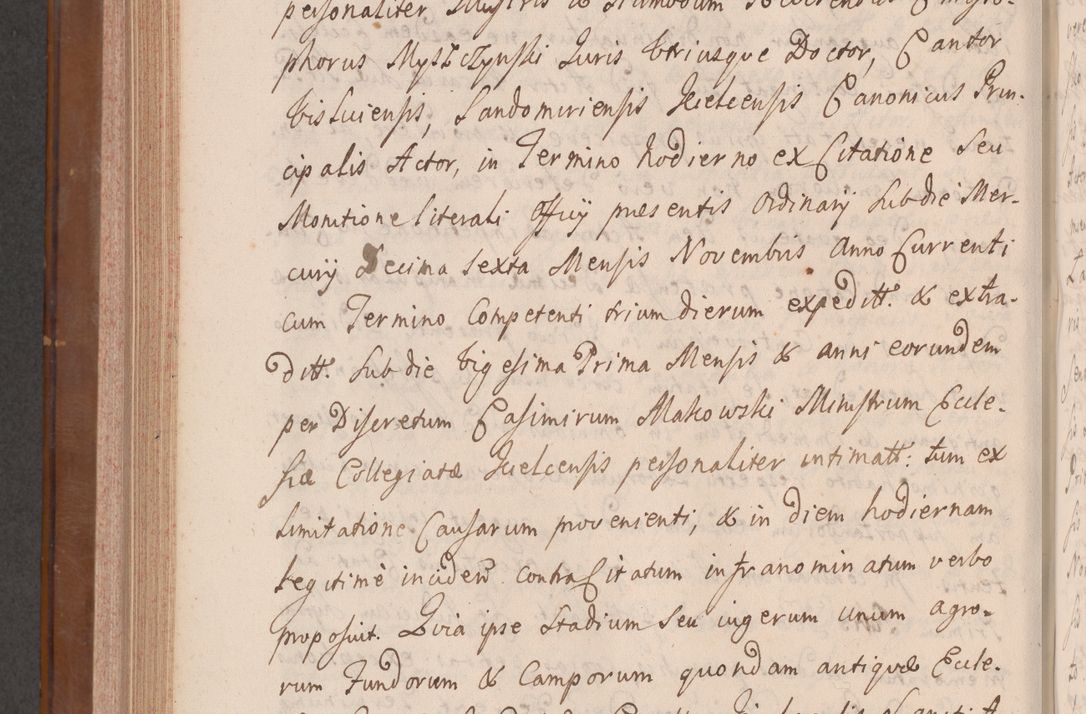 personaliter Illustris & Admodum Reverendus Christo-
phorus Myszczynski Juris Utriusque Doctor, Cantor
Visliciensis, Sandomiriensis Kielcensis Canonicus Prin-
cipalis Actor, in Termino hodierno ex Citatione seu
Monitione literali Officij præsentis Ordinarij sub die Mer-
curij Decima Sexta Mensis Novembris Anno Currenti
cum Termino Competenti trium dierum expeditt. & extra-
ditt. Sub die Vigesima Prima Mensis & anni eorundem
per Discretum Casimirum Makowski Ministrum Eccle-
siæ Collegiatæ Kielcensis personaliter intimatt: tum ex
limitatione Causarum provenienti, & in diem hodiernam
legitimè inciden contra Citatum infranominatum verbo
proposuit. Quia ipse Stadium seu iugerum unum agro-
rum Fundorum & Camporum quondam antiquæ Eccle-